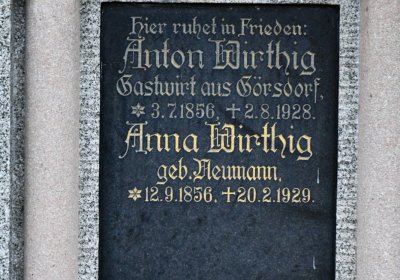 Hier ruhet in Frieden:
Anton Wirthig
Gastwirt aus Görsdorf,
✲ 3.7.1856, ✝ 2.8.1928.
Anna Wirthig
geb. Neumann,
✲ 12.9.1856, ✝ 20.2.1929.